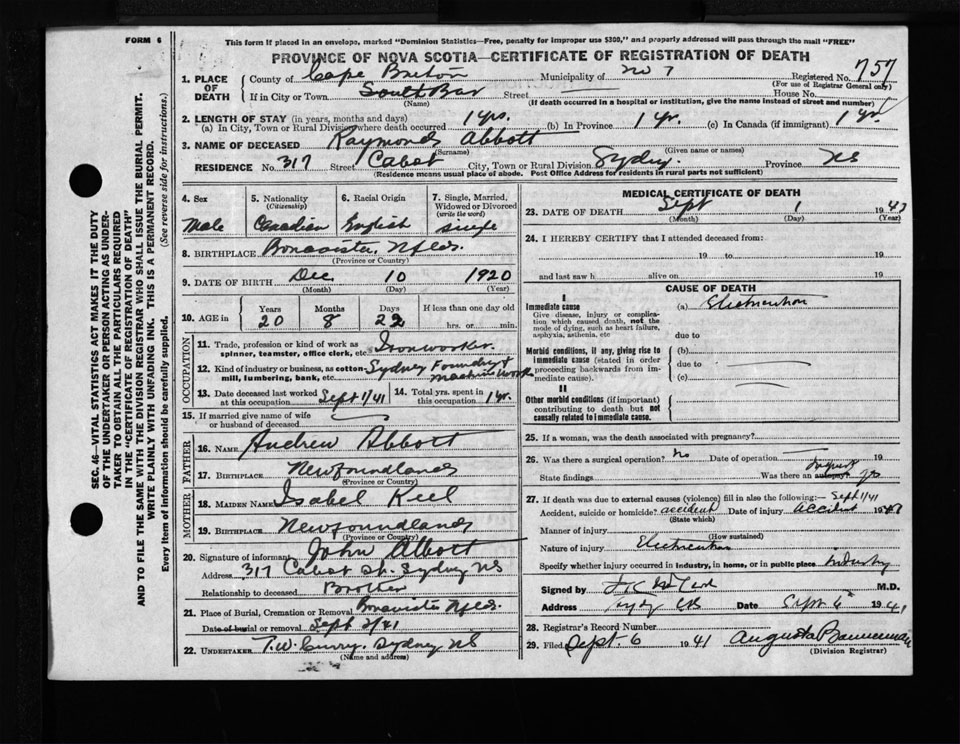 FORM 6
This form if placed in an envelope, marked "Dominion Statistics—Free, penalty for improper use $300," and properly addressed will pass through the mail "FREE"
PROVINCE OF NOVA SCOTIA—CERTIFICATE OF REGISTRATION OF DEATH
SEC. 46—VITAL STATISTICS ACT MAKES IT THE DUTY
OF THE UNDERTAKER OR PERSON ACTING AS UNDER-
TAKER TO OBTAIN ALL THE PARTICULARS REQUIRED
IN THE "CERTIFICATE OF REGISTRATION OF DEATH"
AND TO FILE THE SAME WITH THE DIVISION REGISTRAR WHO SHALL ISSUE THE BURIAL PERMIT.
WRITE PLAINLY WITH UNFADING INK. THIS IS A PERMANENT RECORD.
Every item of information should be carefully supplied. (See reverse side for instructions.)
1. PLACE OF DEATH County of Cape Breton Municipality of No 7 Registered No. 757
(For use of Registrar General only)
If in City or Town South Bar Street House No.
(Name) (If death occurred in a hospital or institution, give the name instead of street and number)
2. LENGTH OF STAY (in years, months and days)
(a) In City, Town or Rural Division where death occurred 1 yrs. (b) In Province 1 yr. (c) In Canada (if immigrant) 1 yr.
3. NAME OF DECEASED Raymond Abbott
(Surname) (Given name or names)
RESIDENCE No. 317 Street Cabot City, Town or Rural Division Sydney. Province NS
(Residence means usual place of abode. Post Office Address for residents in rural parts not sufficient)
4. Sex Male
5. Nationality (Citizenship) Canadian
6. Racial Origin English
7. Single, Married, Widowed or Divorced (write the word) single
8. BIRTHPLACE Bonavista, Nfld.
(Province or Country)
9. DATE OF BIRTH Dec 10 1920
(Month) (Day) (Year)
10. AGE in Years 20 Months 8 Days 22 If less than one day old hrs. or min.
OCCUPATION
11. Trade, profession or kind of work as spinner, teamster, office clerk, etc. Ironworker.
12. Kind of industry or business, as cotton-mill, lumbering, bank, etc. Sydney Foundry & Machine Works
13. Date deceased last worked at this occupation Sept 1/41
14. Total yrs. spent in this occupation 1 yr.
15. If married give name of wife or husband of deceased
FATHER
16. NAME Andrew Abbott
17. BIRTHPLACE Newfoundland
(Province or Country)
MOTHER
18. MAIDEN NAME Isabel Keel
19. BIRTHPLACE Newfoundland
(Province or Country)
20. Signature of informant John Abbott
Address 317 Cabot St. Sydney NS
Relationship to deceased Brother
21. Place of Burial, Cremation or Removal Bonavista Nfld.
Date of burial or removal Sept 2/41
22. UNDERTAKER T.W. Curry, Sydney NS
(Name and address)
MEDICAL CERTIFICATE OF DEATH
23. DATE OF DEATH Sept 1 194
(Month) (Day) (Year)
24. I HEREBY CERTIFY that I attended deceased from:
19 to 19
and last saw h alive on 19
CAUSE OF DEATH
I
Immediate cause (a) Electrocution
Give disease, injury or complication which caused death, not the mode of dying, such as heart failure, asphyxia, asthenia, etc
due to
Morbid conditions, if any, giving rise to immediate cause (stated in order proceeding backwards from immediate cause).
(b)
due to
(c)
II
Other morbid conditions (if important) contributing to death but not causally related to immediate cause.
25. If a woman, was the death associated with pregnancy?
26. Was there a surgical operation? No Date of operation 19
State findings Was there an autopsy? yes
27. If death was due to external causes (violence) fill in also the following:— Sept 1/41
Accident, suicide or homicide? accident Date of injury accident 19
(State which)
Manner of injury
(How sustained)
Nature of injury Electrocution
Specify whether injury occurred in industry, in home, or in public place industry
Signed by M.D.
Address Sydney CB Date Sept 6 1941
28. Registrar's Record Number
29. Filed Sept. 6 1941 Augusta Bannerman
(Division Registrar)